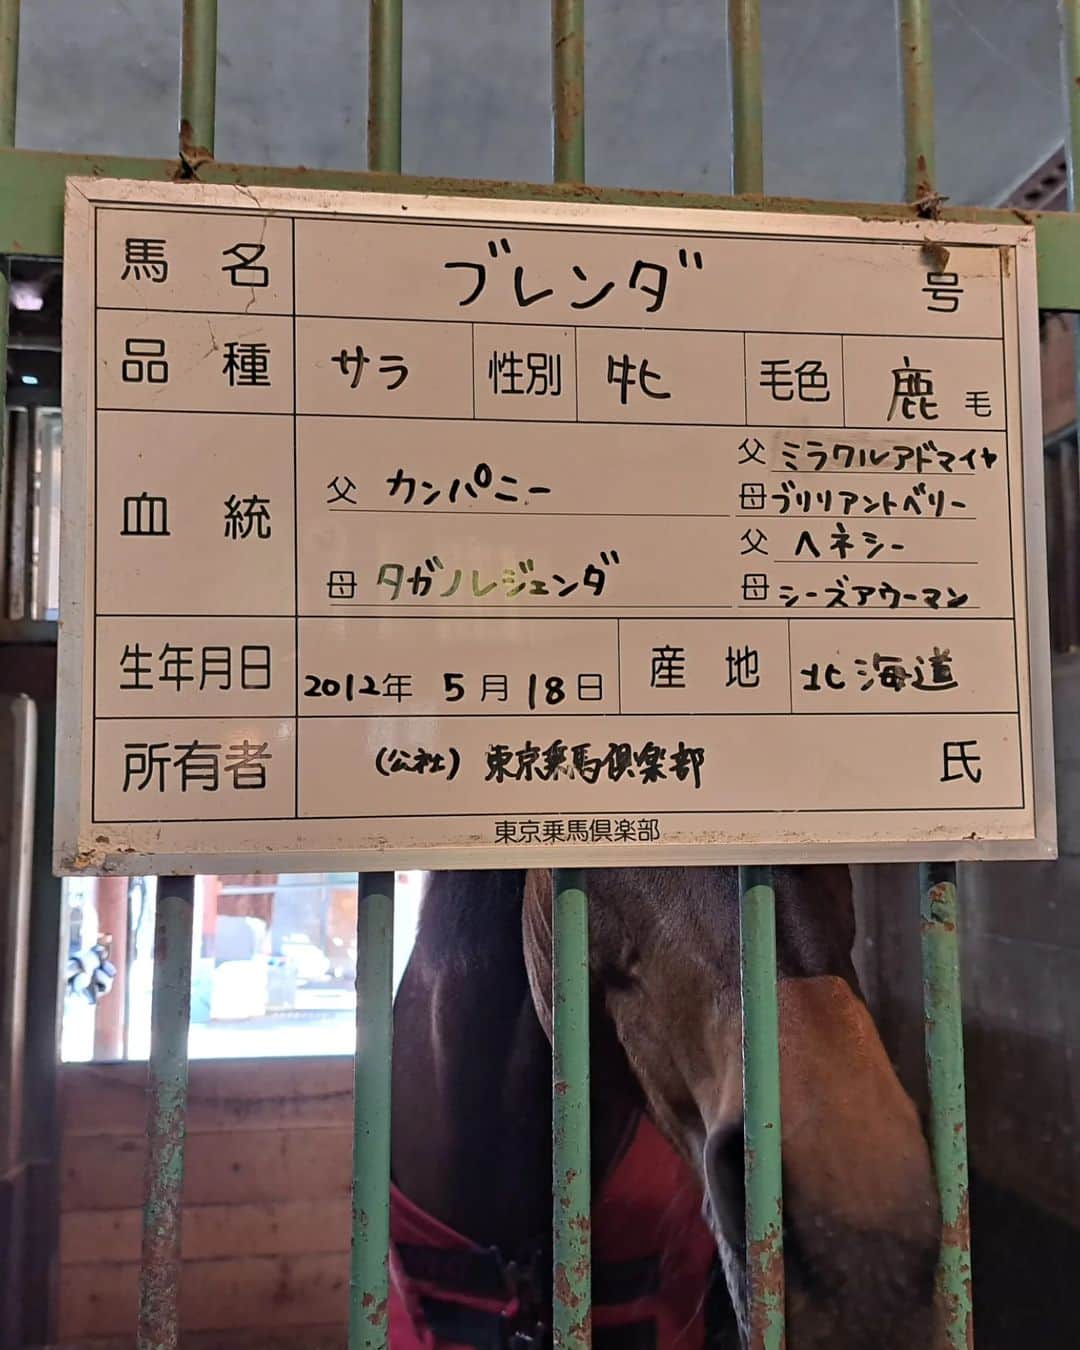 馬名 ブレンダ 号
品種 サラ 性別 牝 毛色 鹿毛
血統
父 カンパニー
父 ミラクルアドマイヤ
母 ブリリアントベリー
母 タガノレジェンダ
父 ヘネシー
母 シーズアウーマン
生年月日 2012年 5月 18日 産地 北海道
所有者 (公社) 東京乗馬倶楽部 氏
東京乗馬倶楽部